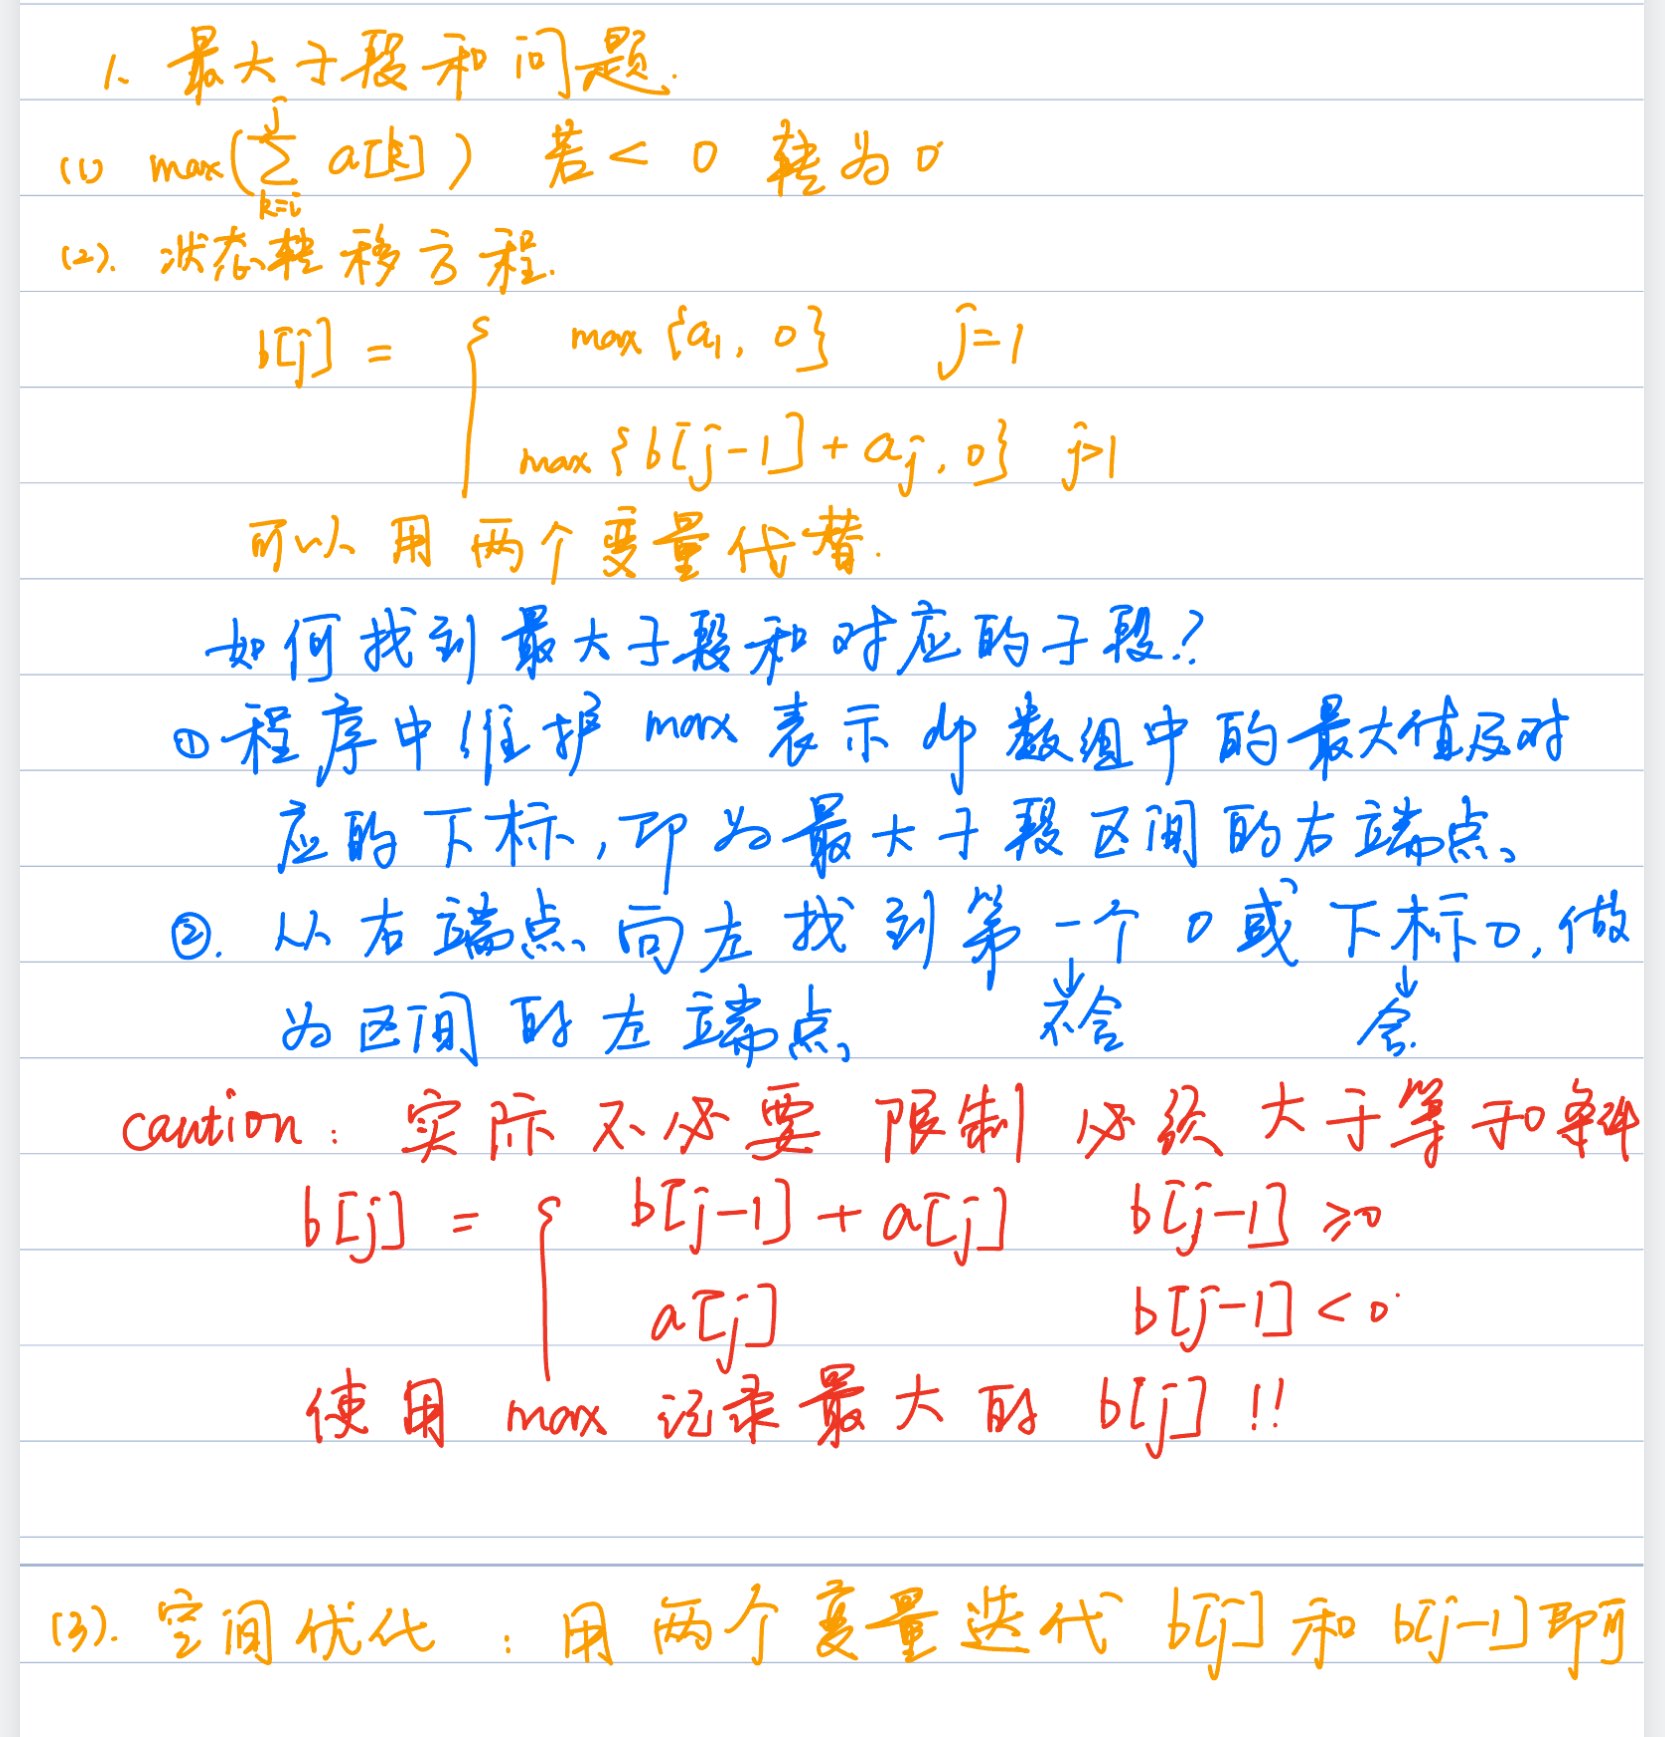 1. 最大子段和问题.
(1) max(∑_{k=i}^{j} a[k]) 若 < 0 转为 0
(2). 状态转移方程.
b[j] = { max {a₁, 0} j=1
max {b[j-1] + aⱼ, 0} j>1
可以用两个变量代替.
如何找到最大子段和对应的子段?
① 程序中维护 max 表示 dp 数组中的最大值及对
应的下标, 即为最大子段区间的右端点。
②. 从右端点向左找到第一个 0 或下标 0, 做
为区间的左端点。 不含 含.
caution: 实际不必要限制必须大于等于0条件
b[j] = { b[j-1] + a[j] b[j-1] ≥0
a[j] b[j-1] < 0.
使用 max 记录最大的 b[j] !!
(3). 空间优化 : 用两个变量迭代 b[j] 和 b[j-1] 即可